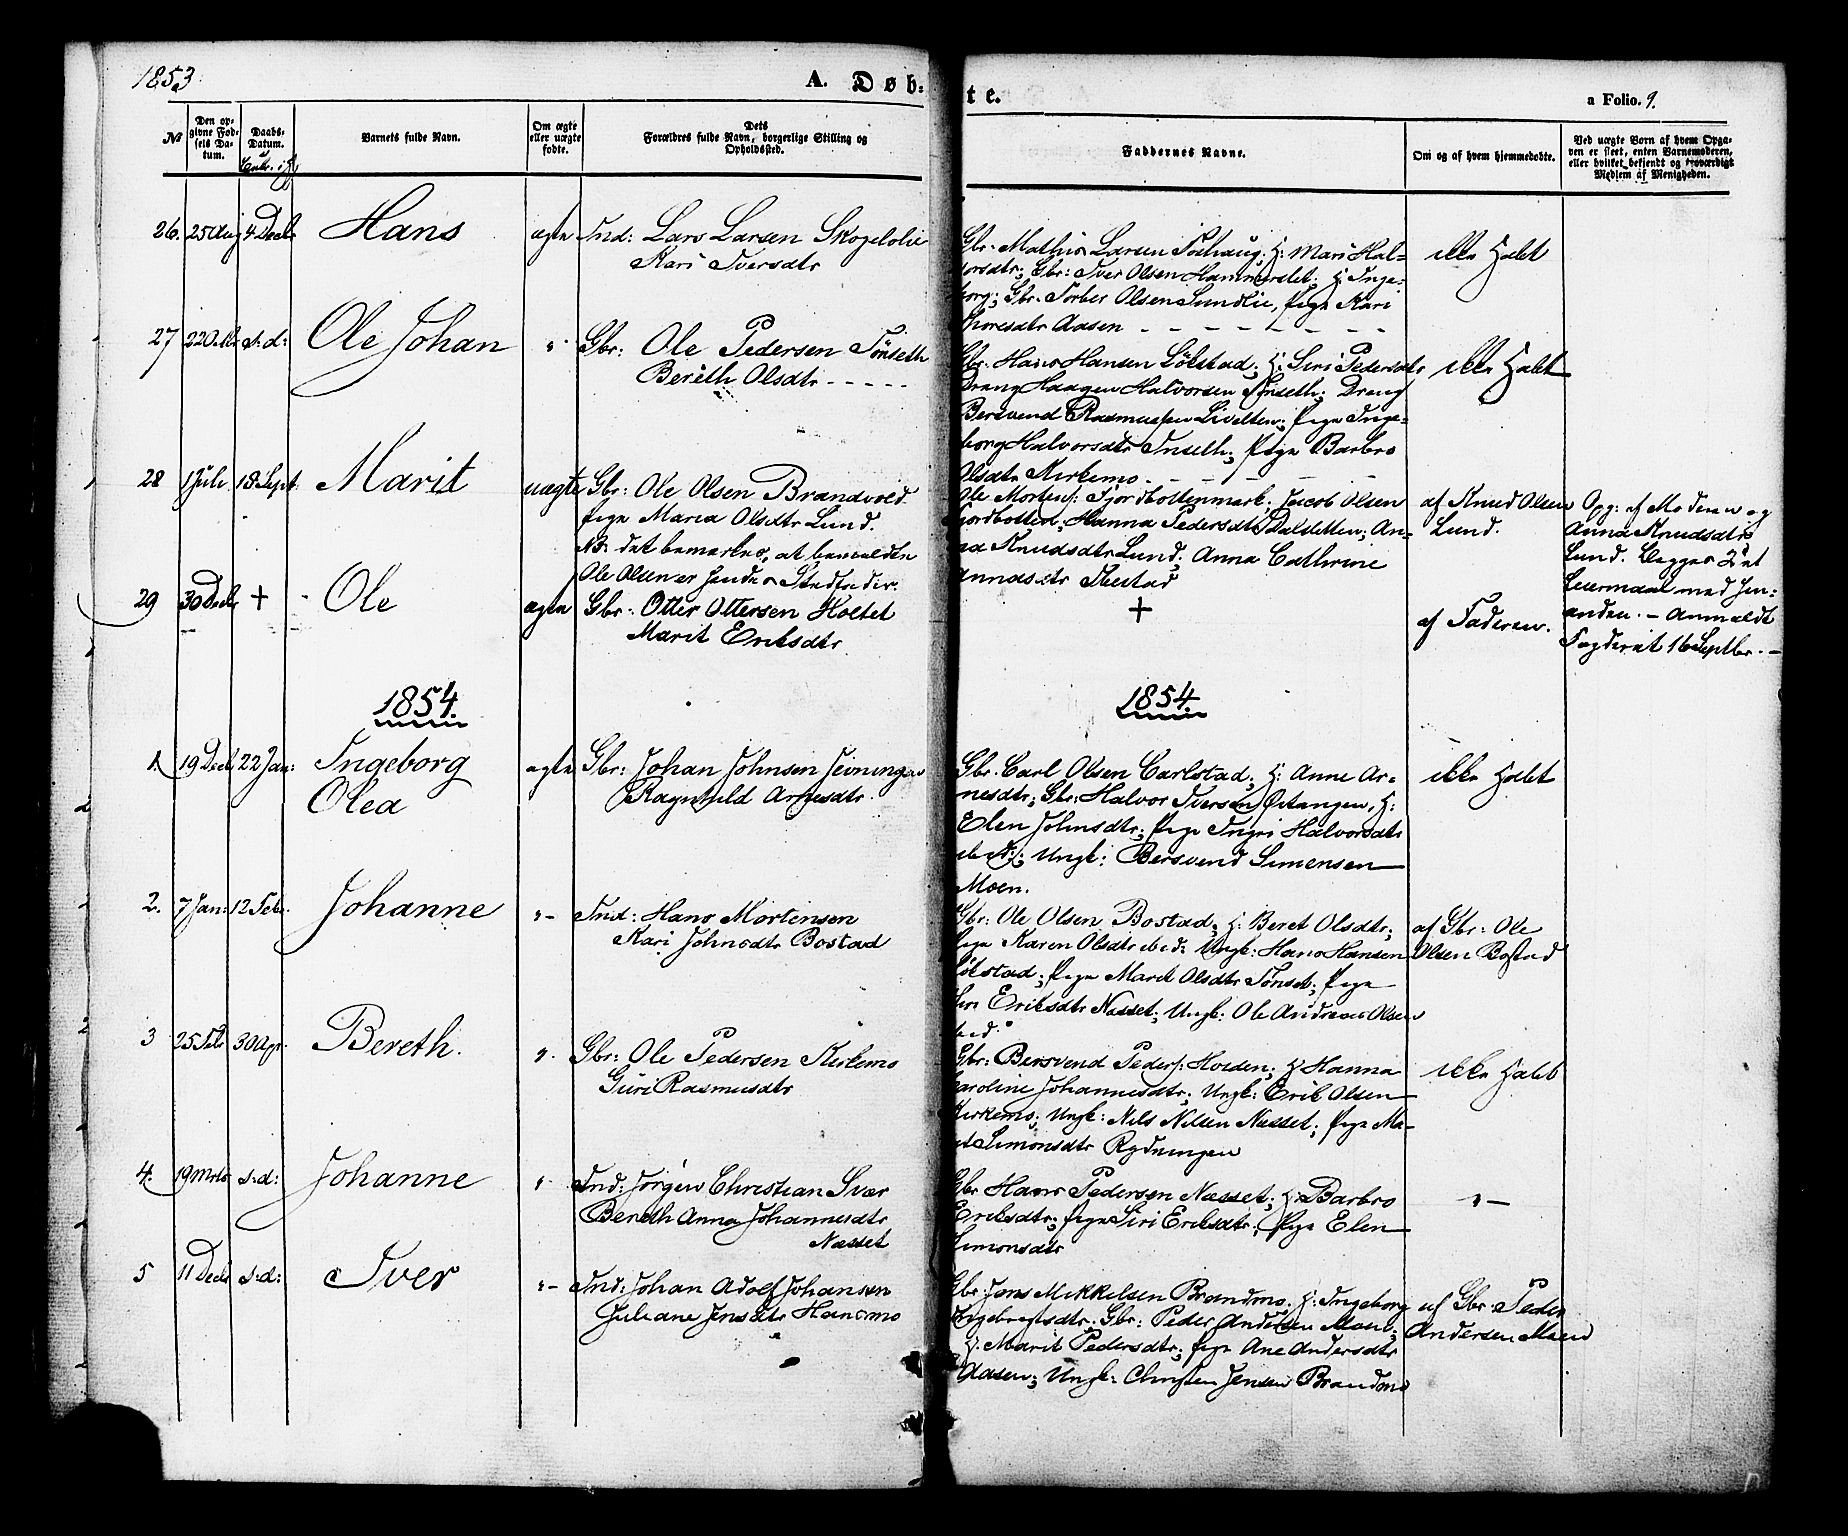 1853.
A. Døb:
te.
a Folio. 9.
No
Den opgivne Fødsels Datum.
Daabs-Datum.
Barnets fulde Navn.
Om ægte eller uægte fødte.
Dets Forældres fulde Navn, borgerlige Stilling og Opholdssted.
Faddernes Navne.
Om og af hvem hjemmedøbte.
Ved uægte Børn af hvem Opgaven er skeet, enten Barnemoderen, eller hvilket bekjendt og troværdigt Medlem af Menigheden.
26. 25 Aug 4 Decb Hans ægte Ind: Lars Larsen Skogelolie
Kari Iversdtr
Gbr. Mathias Larsen; H: Mari Hal-
vorsdtr; Gbr: Iver Olsen Hammerslet; H: Inge-
borg; Gbr. Torber Olsen Lundlie, Pige Kari
Thoresdtr Aasen
ikke Hdbt
27 22 Okt. s.d: Ole Johan " Gbr: Ole Pedersen Tønseth
Bereth Olsdtr
Gbr. Hans Hansen Løkstad; H: Siri Pedersdtr
Dreng Haagen Halvorsen Tønseth; Dreng
Bersvend Rasmussen; Pige Inge-
borg Halvorsdtr Inseth; Pige Barbro
Olsdtr Kirkemo
ikke Hdbt
28 1 Juli 18 Sept. Marit uægte Gbr: Ole Olsen Brandvold.
Pige Maria Olsdtr Lund.
NB. det bemærkes, at bemeldte
Ole Olsen er hendes Stedfader.
Ole Mortens: Fjordbottenmark; Jacob Olsen
Fjordbotten; Hanna Pedersdtr; An-
na Knudsdtr Lund; Anna Cathrine
af Knud Olsen
Lund.
Opg: af Moderen og
Anna Knudsdtr
Lund. Begges 2det
Leiermaal med hin-
anden. - Anmeldt
Fogderiet 16 Septbr. -
29 30 Decb + Ole ægte Gbr: Otter Ottersen Holtet
Marit Eriksdtr
+
af Faderen.
1854.
1854.
1. 19 Decb 22 Jan: Ingeborg
Olea
ægte Gbr: Johan Johnsen
Ragnhild Arnesdtr.
Gbr. Carl Olsen Carlstad; H: Anne Ar-
nesdtr; Gbr: Halvor Iversen, H:
Elen Johnsdtr; Pige Ingri Halvorsdtr
ibid:; Ungk: Bersvend Simensen
Moen.
ikke Hdbt
2. 7 Jan: 12 Febr. Johanne "- Ind: Hans Mortensen
Kari Johnsdtr Bostad
Gbr: Ole Olsen Bostad; H: Beret Olsdtr;
Pige Karen Olsdtr ibid: Ungk: Hans Hansen
Løkstad; Pige Marit Olsdtr Tønset; Pige
Siri Eriksdtr Næsset; Ungk: Ole Andreas Olsen
ibid:
af Gbr: Ole
Olsen Bostad
3 25 Febr 30 Apr. Bereth. ". Gbr: Ole Pedersen Kirkemo
Guri Rasmusdtr
Gbr: Bersvend Peders: Hoeden; H Hanna
Caroline Johannesdtr; Ungk: Erik Olsen
Kirkemo; Ungk: Nils Nilsen Næsset; Pige Ma-
Simonsdtr Rydningen
ikke Hdbt
4. 19 Mrts s.d: Johanne " Ind: Jørgen Christian Svær
Bereth Anna Johannesdtr
Næsset
Gbr Hans Pedersen Næsset; H: Barbro
Eriksdtr; Pige Siri Eriksdtr; Pige Elen
Simonsdtr
"-
5 11 Decb s.d: Iver "- Ind: Johan Adolf Johansen
Juliane Jensdtr Hansmo
Gbr: Jens Mikkelsen Brandmo; H: Ingeborg
Ingebrigtsdtr. Gbr: Peder Andersen Moen;
H: Marit Pedersdtr; Pige Ane Andersdtr
Aasen; Ungk: Christen Jensen Brandmo
af Gbr. Peder
Andersen Moen